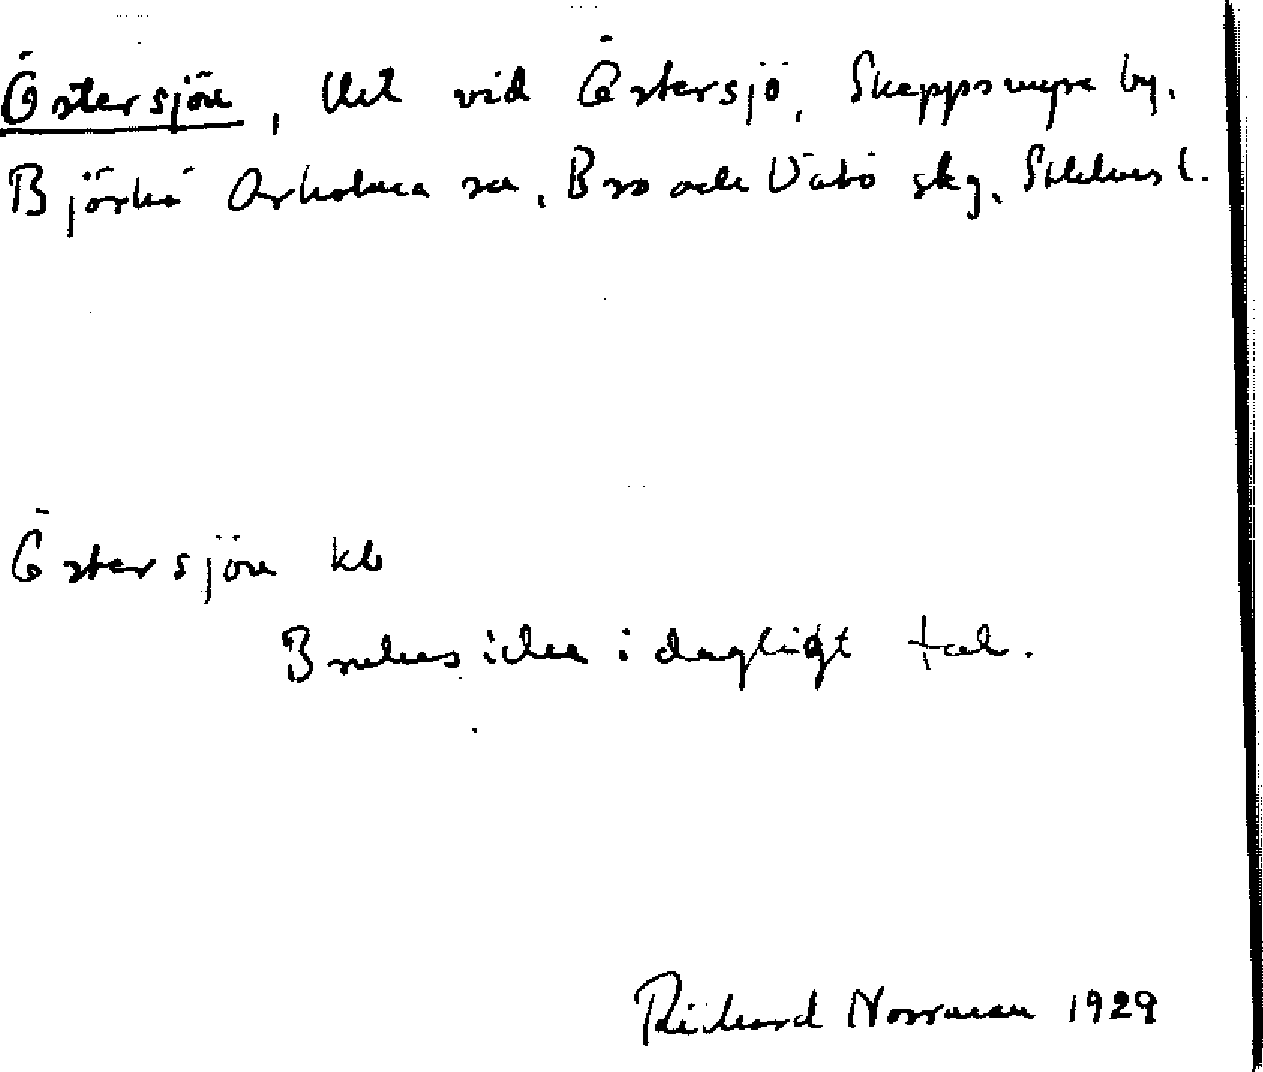 Östersjön, Utt vid Östersjö, Skeppsmyra by,
Björkö Arholma sn, Bro och Vätö skg, Sthlms l.
Östersjön kb
i dagligt tal.
Richard Norrman 1929